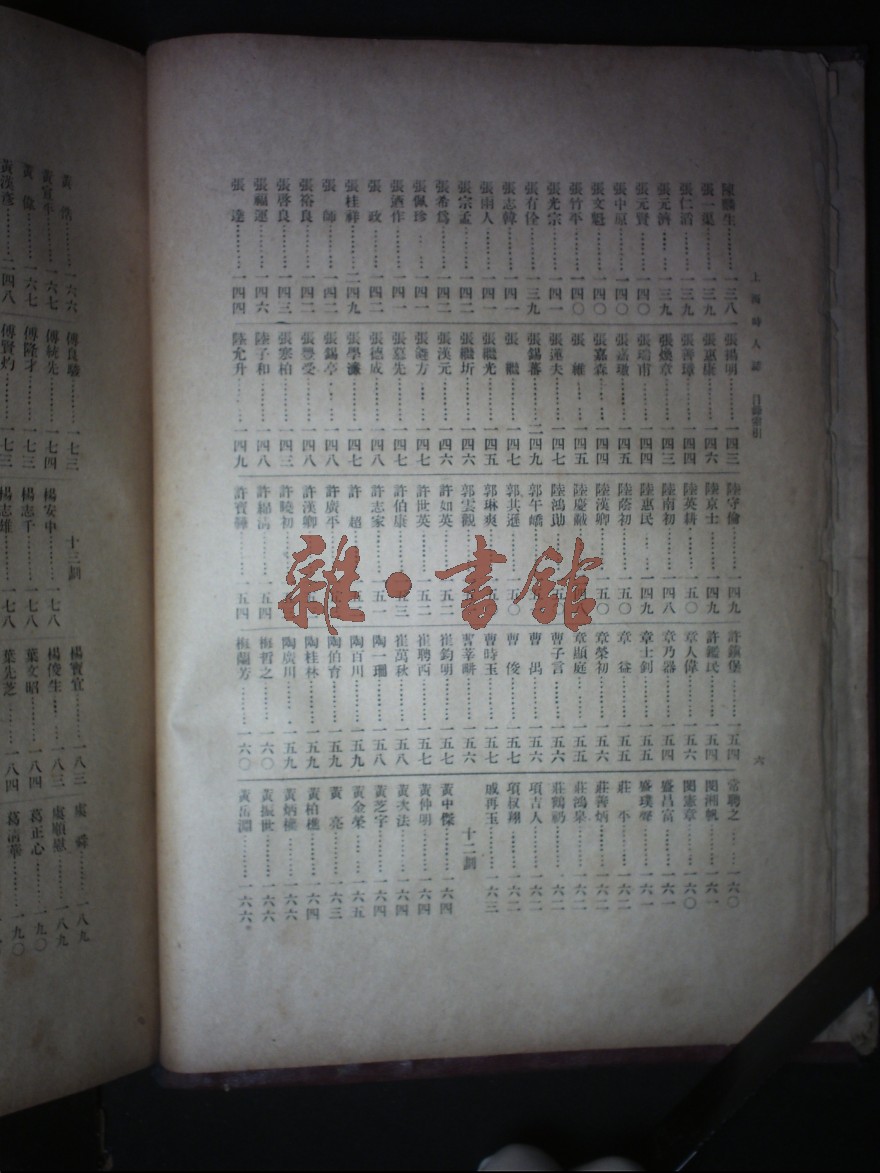 上海時人誌 目錄索引
六
陳騰生……一三八
張一渠……一三九
張仁滔……一三九
張元濟……一三九
張元賢……一四〇
張中原……一四〇
張文魁……一四〇
張竹平……一四〇
張光宗……一四一
張有佺……一三九
張志韓……一四一
張雨人……一四一
張宗孟……一四二
張希為……一四二
張佩珍……一四一
張迺作……一四一
張 政……一四二
張桂祥……二四九
張 師……一四二
張裕良……一四二
張啓良……一四三
張福運……一四六
張 達……一四四
張揚明……一四三
張惠康……一四六
張善琨……一四四
張煥章……一四三
張瑞甫……一四四
張嘉璈……一四五
張嘉森……一四四
張 維……一四五
張蓮夫……一四七
張錫蕃……二四九
張 繼……一四七
張繼光……一四五
張繼圻……一四六
張漢元……一四六
張達方……一四七
張慕先……一四七
張德成……一四八
張學濂……一四七
張錫亭……一四八
張豐受……一四八
張寒柏……一四三
陸子和……一四八
陸允升……一四九
陸守倫……一四九
陸京士……一四九
陸英耕……一五〇
陸南初……一四八
陸惠民……一四九
陸蔭初……一五〇
陸漢卿……一五〇
陸慶黻
陸鴻勛
郭午嶠
郭其遜……一五〇
郭琳爽
郭雲觀
許如英……一五二
許世英……一五二
許伯康……一五三
許志家……一五一
許 超
許廣平
許漢卿
許曉初
許錫清……一五四
許寶驊……一五四
許鎮堡……一五四
許鑑民……一五四
章人偉……一五六
章乃器……一五四
章士釗……一五五
章 益……一五五
章榮初……一五六
章顯庭……一五六
曹子言……一五六
曹 禺……一五六
曹 俊……一五七
曹時玉……一五七
曹莘畊……一五六
崔鈞明……一五七
崔聘西……一五七
崔萬秋……一五八
陶一珊……一五八
陶百川……一五九
陶伯育……一五九
陶桂林……一五九
陶廣川……一五九
梅哲之……一六〇
梅蘭芳……一六〇
常聘之……一六〇
閔湘帆……一六一
閔憲章……一六〇
盛昌富……一六一
盛璞聲……一六一
莊 平……一六二
莊善炳……一六二
莊鴻泉……一六二
莊鶴礽……一六二
項吉人……一六二
項叔翔……一六二
戚再玉……一六三
十二劃
黃中傑……一六四
黃仲明……一六四
黃次法……一六四
黃芝宇……一六四
黃金榮……一六五
黃 亮……一六三
黃柏樵……一六四
黃炳權……一六六
黃振世……一六六
黃岳淵……一六六
黃 浩……一六六
黃宣平……一六七
黃 偉……一六七
黃漢彥……二四八
傅良駿……一七三
傅統先……一七四
傅隆才……一七三
傅賢灼……一七三
十三劃
楊安中……一七八
楊志千……一七八
楊志雄……一七八
楊寶宜……一八三
楊俊生……一八三
葉文昭……一八四
葉先芝……一八四
虞 舜……一八九
虞順懋……一八九
葛正心……一九〇
葛清華……一九〇
雜·書館